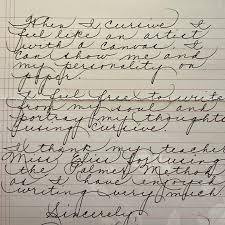 When I cursive I
feel like an artist
with a canvas. I
can show me and
my personality on
paper.
I feel free to write
from my soul and
portray my thoughts
using cursive.
I thank my teacher
Miss Ellis for using
the Palmer Method
as I have enjoyed
writing very much.
Sincerely,